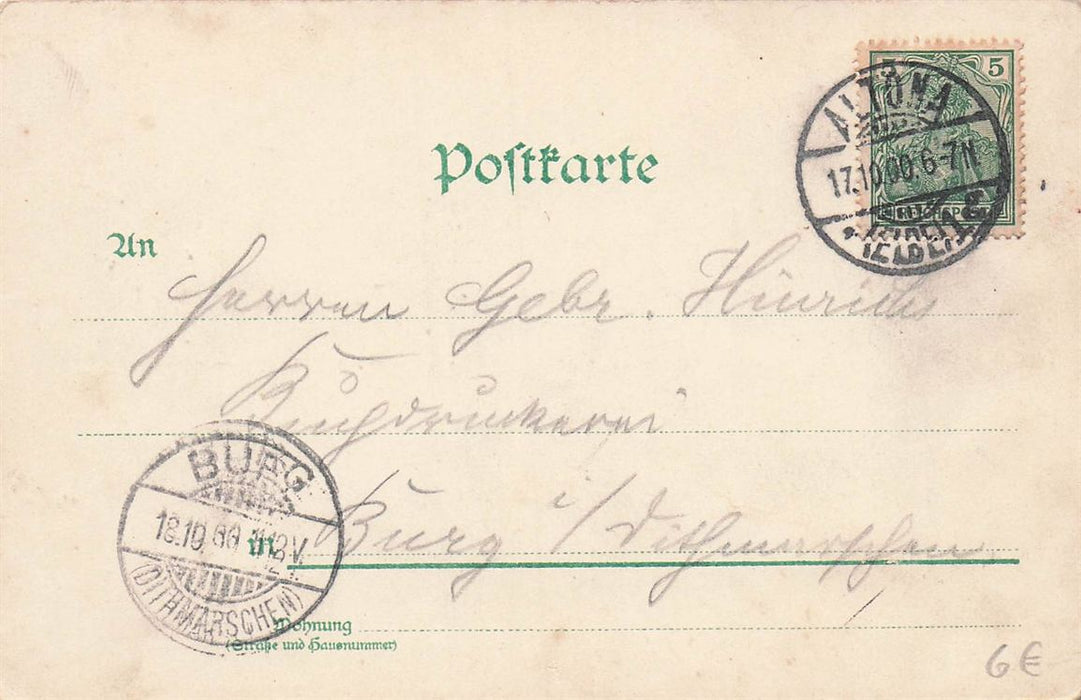 Postkarte
5
ALTONA
17.10.00. 6-7N
(ELBE)
An
Herren Gebr. Hinrichs
Buchdruckerei
in Burg i/Dithmarschen
BURG
18.10.00
V.
(DITHMARSCHEN)
Wohnung
(Straße und Hausnummer)
6€